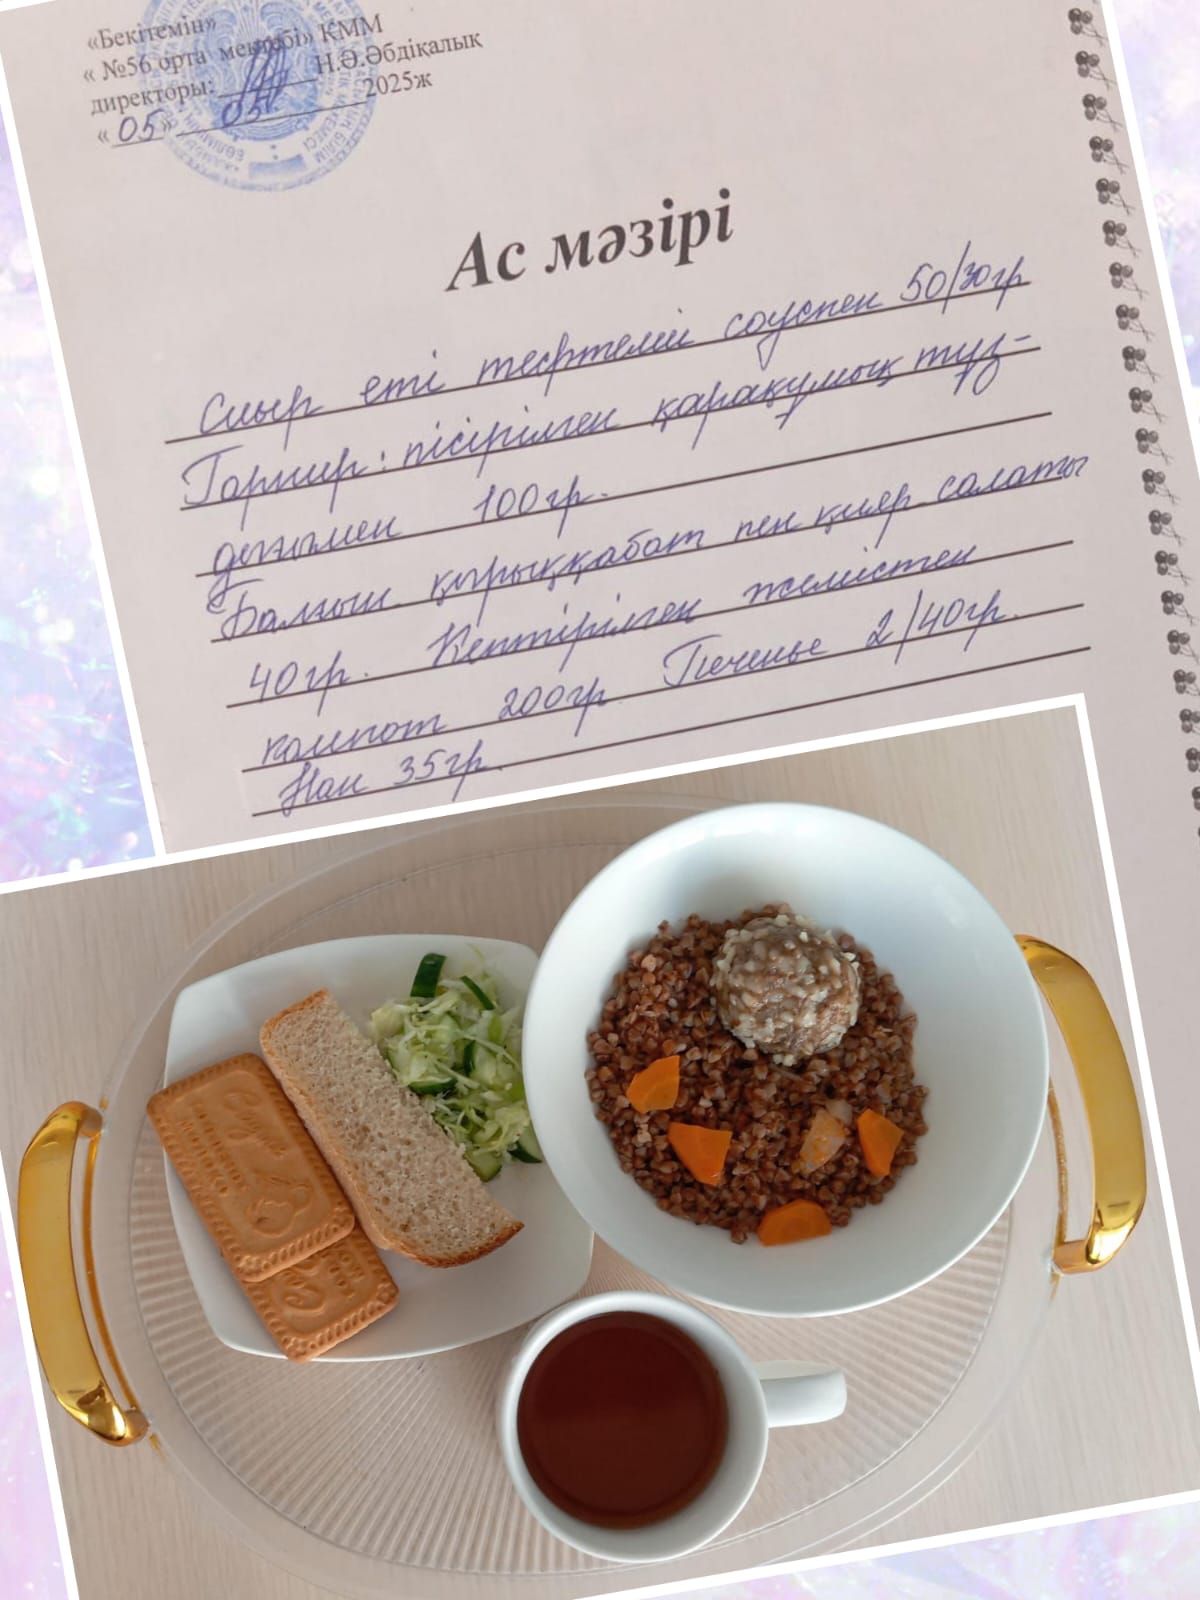 «Бекітемін»
« №56 орта мектебі» КММ
директоры: Н.Ә.Әбдіқалық
« 05 » 05. 2025ж
Ас мәзірі
Сиыр еті тефтелиі соуспен 50/30гр
Гарнир: пісірілген қарақұмық тұз-
дығымен 100гр.
Балғын қырыққабат пен қияр салаты
40гр. Кептірілген жемістен
компот 200гр Печенье 2/40гр.
Нан 35гр.